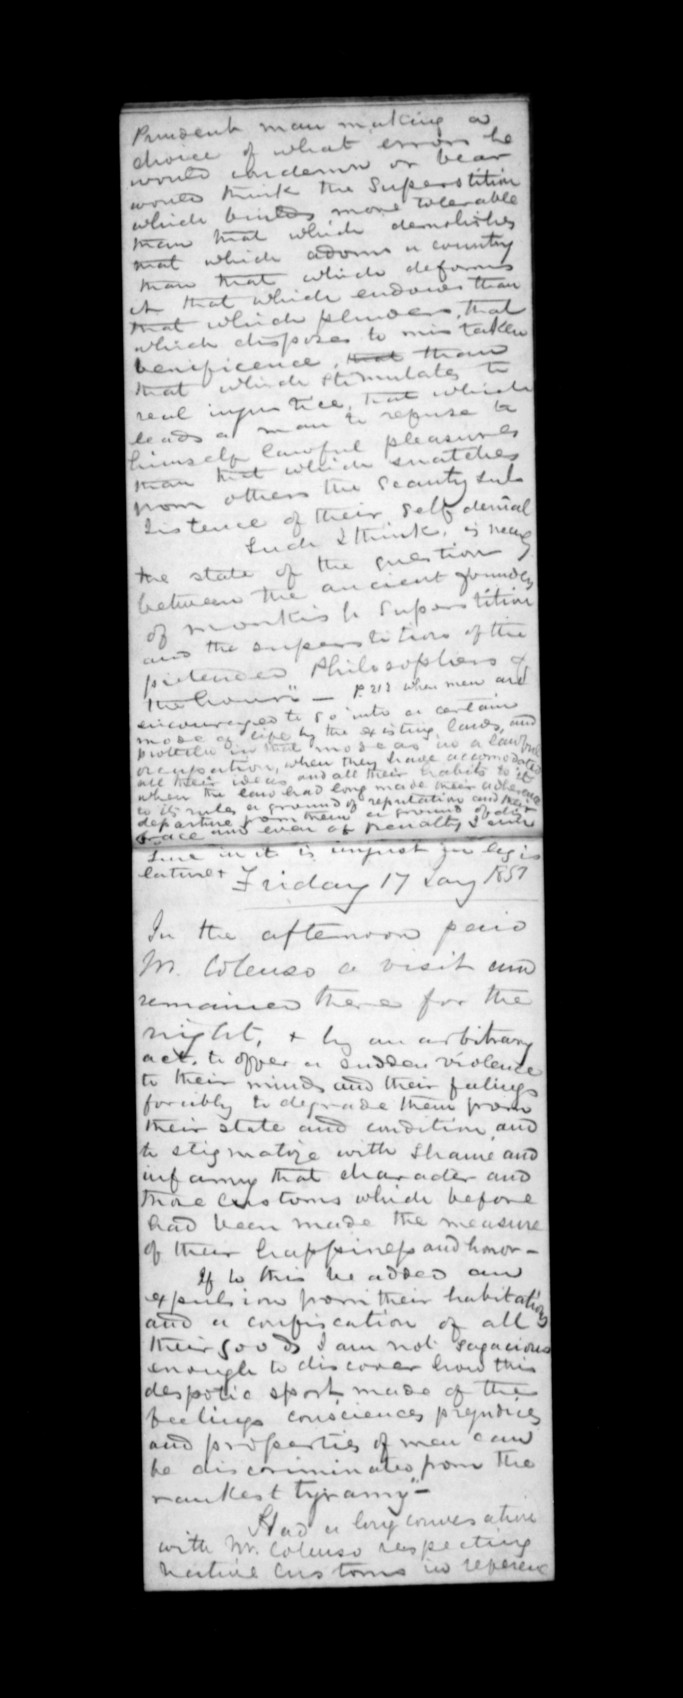 Prudent man making a
choice of what errors he
would condemn or bear
would think the Superstition
which builds more tolerable
than that which demolishes
that which adorns a country
than that which deforms
it that which endows than
that which plunders, that
which disposes to mistaken
benificence, that than
that which stimulates to
real injustice, that which
leads a man to refuse to
himself lawful pleasures
than that which snatches
from others the scanty sub
sistence of their self denial
Such I think, is nearly
the state of the question
between the ancient founders
of monkish superstition
and the superstition of the
pretended Philosophers of
the hour" — P. 212 when men are
encouraged to go into a certain
mode of life by the existing laws, and
protected in that mode as in a lawful
occupation, when they have accomodated
all their ideas and all their habits to it
when the law had long made their adherence
to its rules a ground of reputation and their
departure from them a ground of dis
grace and even of penalty I am
sure in it is unjust in legis
lature +
Friday 17 Jany 1851
In the afternoon paid
Mr. Colenso a visit and
remained there for the
night, + by an arbitrary
act, to offer a sudden violence
to their minds and their feelings
forcibly to degrade them from
their state and condition, and
to stigmatize with shame and
infamy that character and
those customs which before
had been made the measure
of their happiness and honor —
If to this be added an
expulsion from their habitations
and a confiscation of all
their goods I am not sagacious
enough to discover how this
despotic sport made of the
feelings consciences prejudices
and properties of men can
be discriminated from the
rankest tyranny" —
Had a long conversation
with Mr. Colenso respecting
Native Customs in referenc